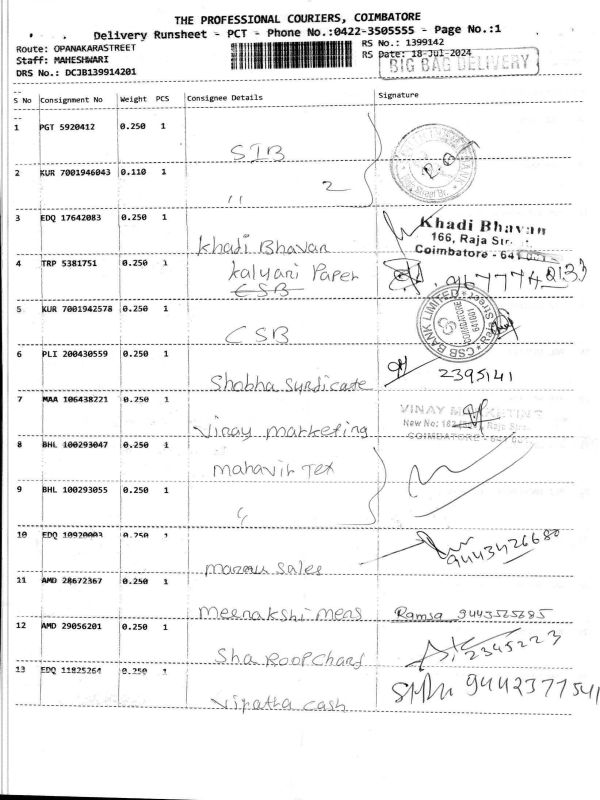 THE PROFESSIONAL COURIERS, COIMBATORE
Delivery Runsheet - PCT - Phone No.:0422-3505555 - Page No.:1
Route: OPANAKARASTREET
RS No.: 1399142
Staff: MAHESHWARI
RS Date: 18-Jul-2024
DRS No.: DCJB139914201
BIG BAG DELIVERY
S No Consignment No Weight PCS Consignee Details Signature
1 PGT 5920412 0.250 1
SIB
2 KUR 7001946043 0.110 1
,, 2
3 EDQ 17642083 0.250 1
Khadi Bhavan
Khadi Bhavan
166, Raja Str
Coimbatore - 641 001
4 TRP 5381751 0.250 1
Kalyani Paper
CSB
5 KUR 7001942578 0.250 1
CSB
CSB BANK LIMITED
COIMBATORE
641001
6 PLI 200430559 0.250 1
Shobha Syndicate
2395141
7 MAA 106438221 0.250 1
Vinay marketing
VINAY MARKETING
COIMBATORE - 641 001
8 BHL 100293047 0.250 1
mahavir Tex
9 BHL 100293055 0.250 1
,,
10 EDQ 10920003 0.250 1
sales
9443426680
11 AMD 28672367 0.250 1
meenakshi mens
9443525685
12 AMD 29056201 0.250 1
Sha Roopchand
2345223
13 EDQ 11825264 0.250 1
cash
9442377541